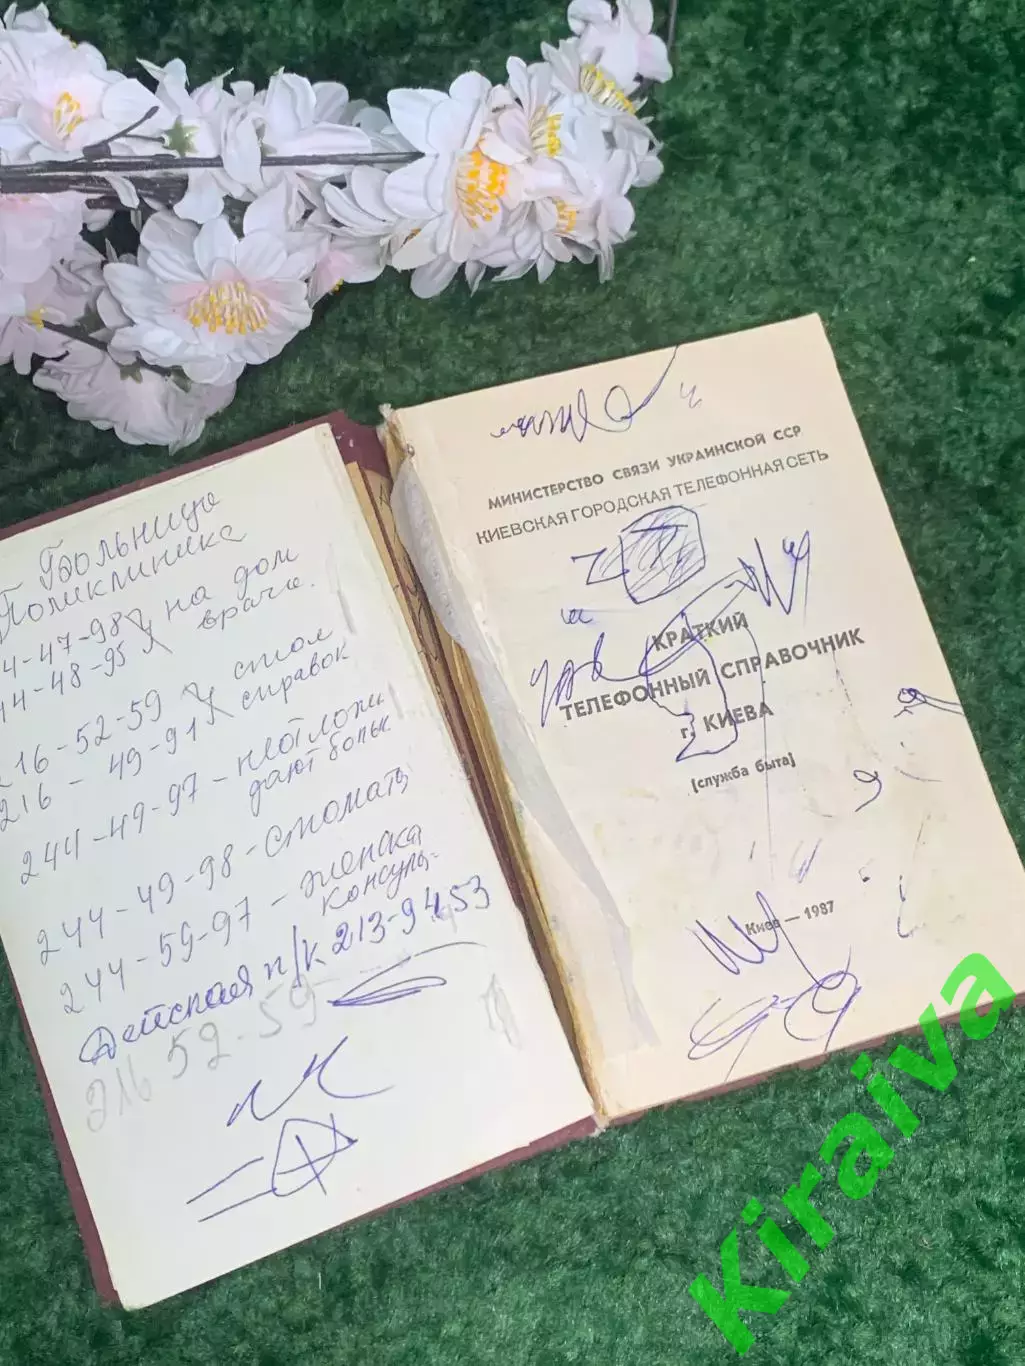 Больница
Поликлиника
4-47-98 на дом
44-48-95 врача.
216-52-59 стол
216-49-91 справок
244-49-97-неотлож
дают больн.
244-49-98-стомат
244-59-97-женска
консульт.
Детская п/к 213-94-53
216 52-59
МИНИСТЕРСТВО СВЯЗИ УКРАИНСКОЙ ССР
КИЕВСКАЯ ГОРОДСКАЯ ТЕЛЕФОННАЯ СЕТЬ
КРАТКИЙ
ТЕЛЕФОННЫЙ СПРАВОЧНИК
г. КИЕВА
[служба быта]
Киев — 1987
Kiraiva